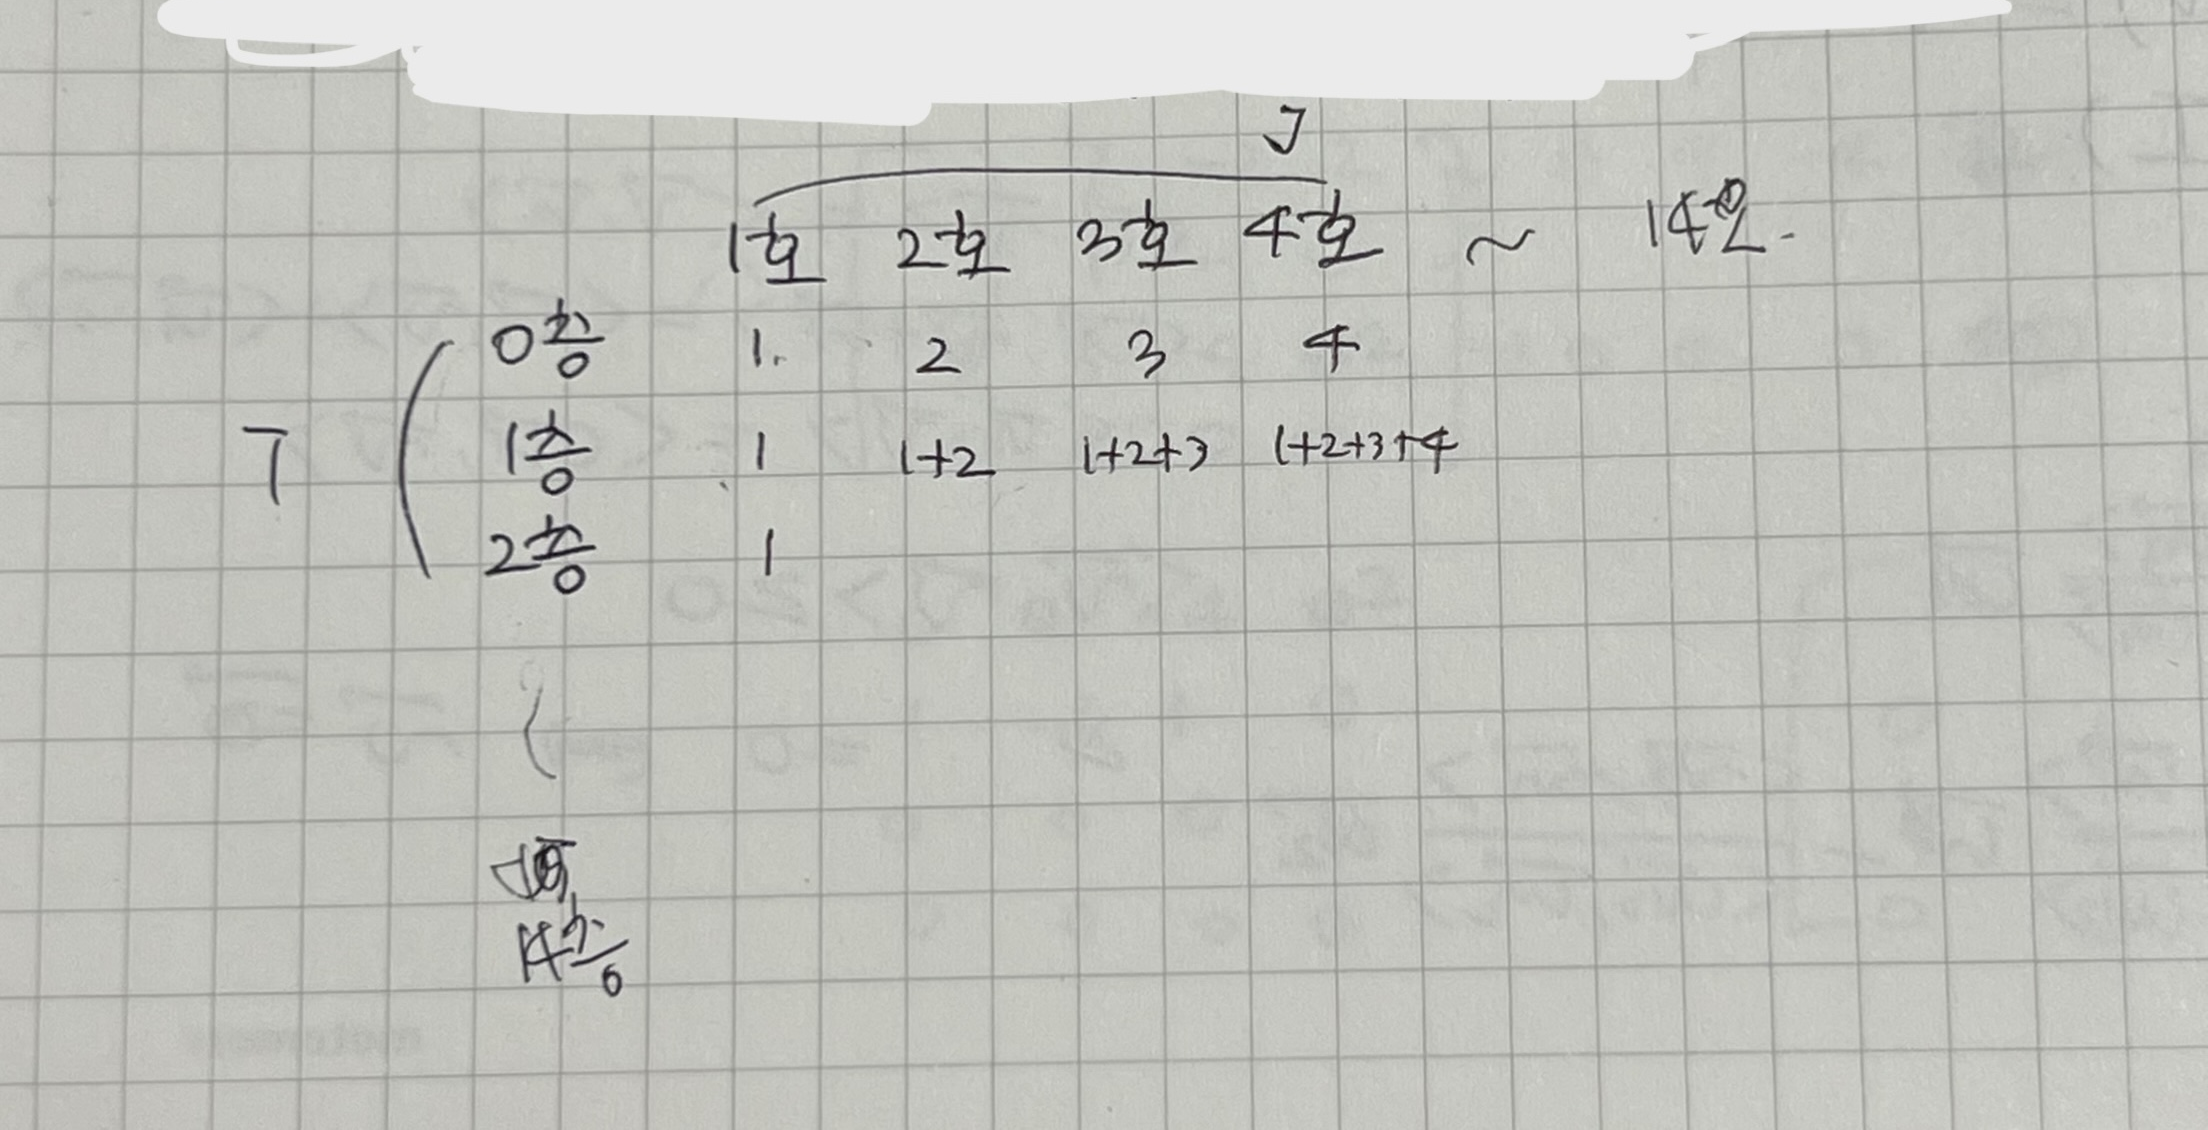 J
1열 2열 3열 4열 ~ 14열.
0층 1. 2 3 4
T ( 1층 1 1+2 1+2+3 1+2+3+4
2층 1
14층